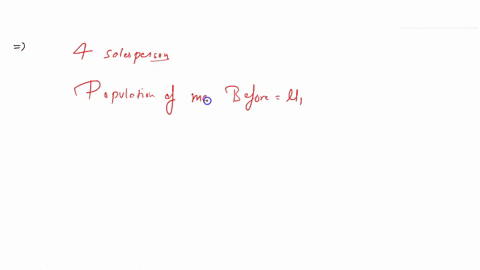 =) 4 salesperson
Population of me Before = μ,